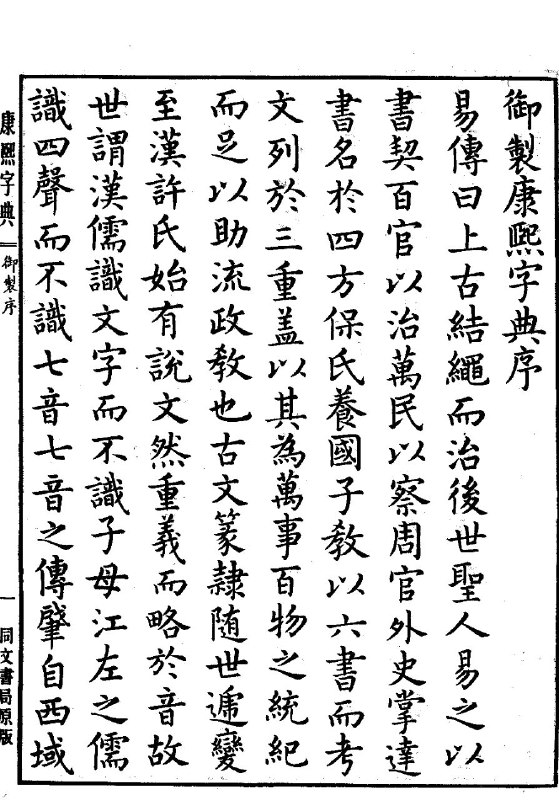 御製康熙字典序
易傳曰上古結繩而治後世聖人易之以
書契百官以治萬民以察周官外史掌達
書名於四方保氏養國子敎以六書而考
文列於三重盖以其為萬事百物之統紀
而足以助流政敎也古文篆隷随世遞變
至漢許氏始有說文然重義而略於音故
世謂漢儒識文字而不識子母江左之儒
識四聲而不識七音七音之傳肇自西域
康熙字典
御製序
一
同文書局原版